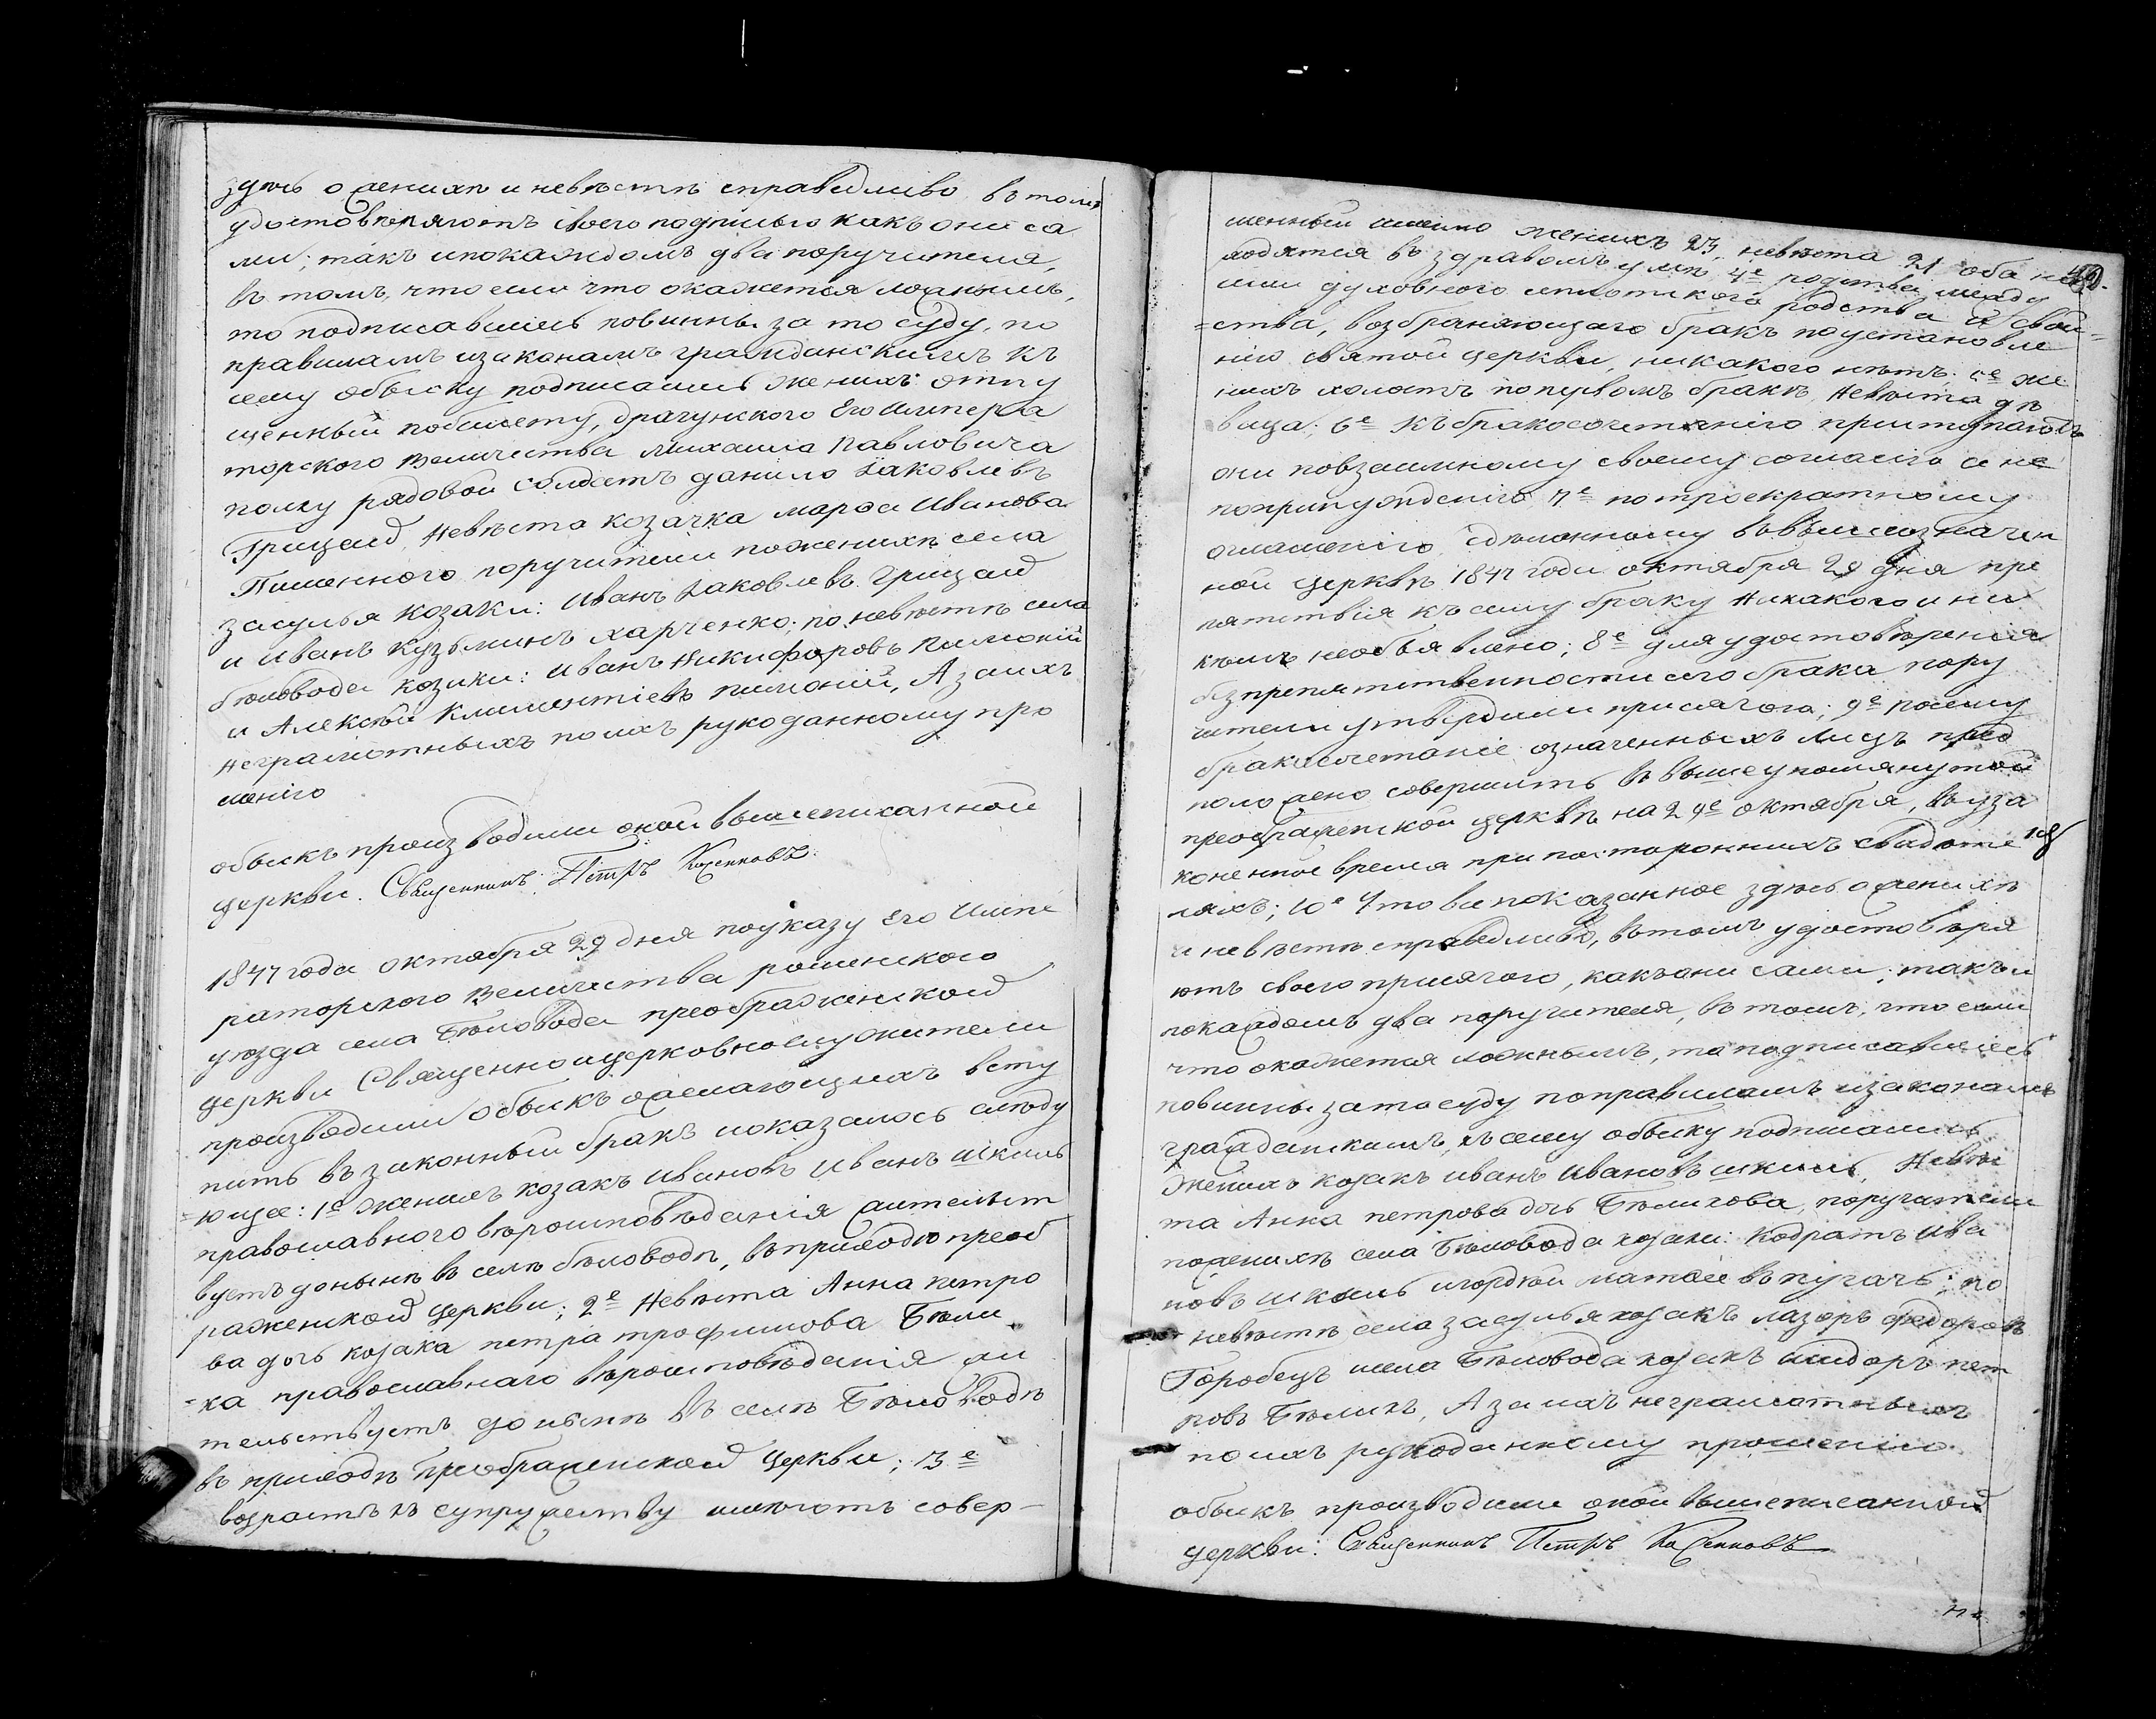 здѣсь о женихѣ и невѣстѣ справедливо въ томъ
удостовѣряютъ своею подписью какъ они са
ми; такъ и по каждомъ два поручителя,
въ томъ, что если что окажется ложнымъ,
то подписавшиеся повинны за то суду, по
правиламъ и законамъ гражданскимъ къ
сему обыску подписались женихъ отпу
щенный по билету, драгунского Его Импера
торского Величества Михаила Павловича
полку рядовой солдатъ данило Яковлевъ
Грицай, Невѣста козачка марфа Иванова
Пименного поручители по женихѣ села
засулья козаки: Иванъ Яковлевъ Грицай
и Иванъ Кузьминъ Харченко; по невѣстѣ села
бѣловода козаки: Иванъ Никифоровъ Пимоній
и Алексѣй Климентіевъ пимоній, А за ихъ
неграмотныхъ по ихъ рукоданному про
шенію
обыскъ производили оной вышеписанной
церкви. Священникъ Петръ
1847 года октября 29 дня по указу Его Импе
раторского Величества роменского
уѣзда села Бѣловода преображенской
церкви Священно и церковнослужители
производили обыскъ о желающихъ всту
пить въ законный бракъ и оказалось слѣду
=ющее: 1е Женихъ козакъ Ивановъ Иванъ шкиль
православного вѣроисповѣданія жительст
вуетъ донынѣ въ селѣ бѣловодѣ, въ приходѣ преоб
раженской церкви; 2е Невѣста Анна петро
ва дочь козака петра трофимова Бѣли
=ка православнаго вѣроисповѣданія жи
тельствуетъ донынѣ въ селѣ Бѣловодѣ
въ приходѣ Преображенской Церкви; 3е
возрастъ къ супружеству имѣютъ совер-
шенный именно женихъ 23, невѣста 21 оба
ходятся въ здравомъ умѣ 4е родства между
ими духовного и плотского родства и свой=
=ства, возбраняющаго бракъ по установле
нію святой церкви, никакого нѣтъ; 5е же
нихъ холостъ по первомъ бракѣ, Невѣста дѣ
вица; 6е Къ бракосочетанію приступаютъ
они по взаимному своему согласію а не
по принужденію 7е по троекратному
оглашенію сдѣланному въ вышеозначен
ной церквѣ 1847 года октября 29 дня пре
пятствія къ сему браку никакого и ни
кѣмъ необъявлено; 8е для удостовѣренія
безпрепятственности сего брака пору
чители утвердили присягою; 9е посему
бракосочетаніе означенныхъ лицъ пред
положено совершить въ вышеупомянутой
преображенской церквѣ на 29е октября, въ уза
коненное время при постороннихъ свидѣте
ляхъ; 10е Что все показанное здѣсь о женихѣ
и невѣстѣ справедливо, въ томъ удостовѣря
ютъ своею присягою, какъ они сами; такъ и
по каждомъ два поручителя, въ томъ, что если
что окажется ложнымъ, то подписавшиесь
повинны за то суду по правиламъ и законамъ
гражданскимъ, къ сему обыску подписались
Женихъ козакъ Иванъ Ивановъ шкиль, Невѣс
та Анна петрова дочь Бѣликова, поручители
по женихѣ села Бѣловода козаки: Кодратъ Ива
новъ шкиль и матвеевъ пугачъ; по
невѣстѣ села засулья козакъ лазоръ федоровъ
Горобецъ и села Бѣловода козакъ сидоръ пет
ровъ Бѣликъ, А за ихъ неграмотныхъ
по ихъ рукоданному прошенію
обыскъ производили оной вышеписанной
церкви: Священникъ Петръ